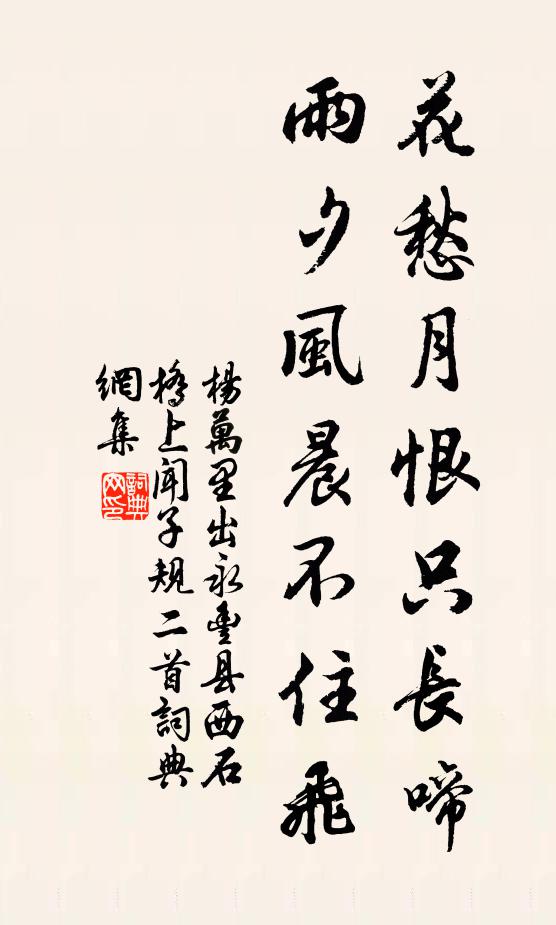 花愁月恨只長啼
雨夕風晨不住飛
楊萬里出永豊县西石
橋上聞子規二首詞典
網集
詞典
网印